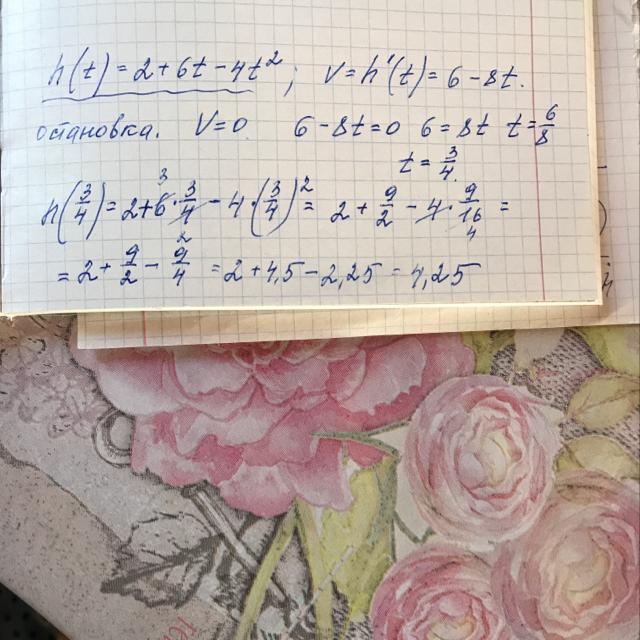 h(t) = 2 + 6t - 4t² ; v = h'(t) = 6 - 8t.
остановка. V = 0 6 - 8t = 0 6 = 8t t = 6/8
t = 3/4.
h(3/4) = 2 + 6 · 3/4 - 4 · (3/4)² = 2 + 9/2 - 4 · 9/16 =
= 2 + 9/2 - 9/4 = 2 + 4,5 - 2,25 = 4,25